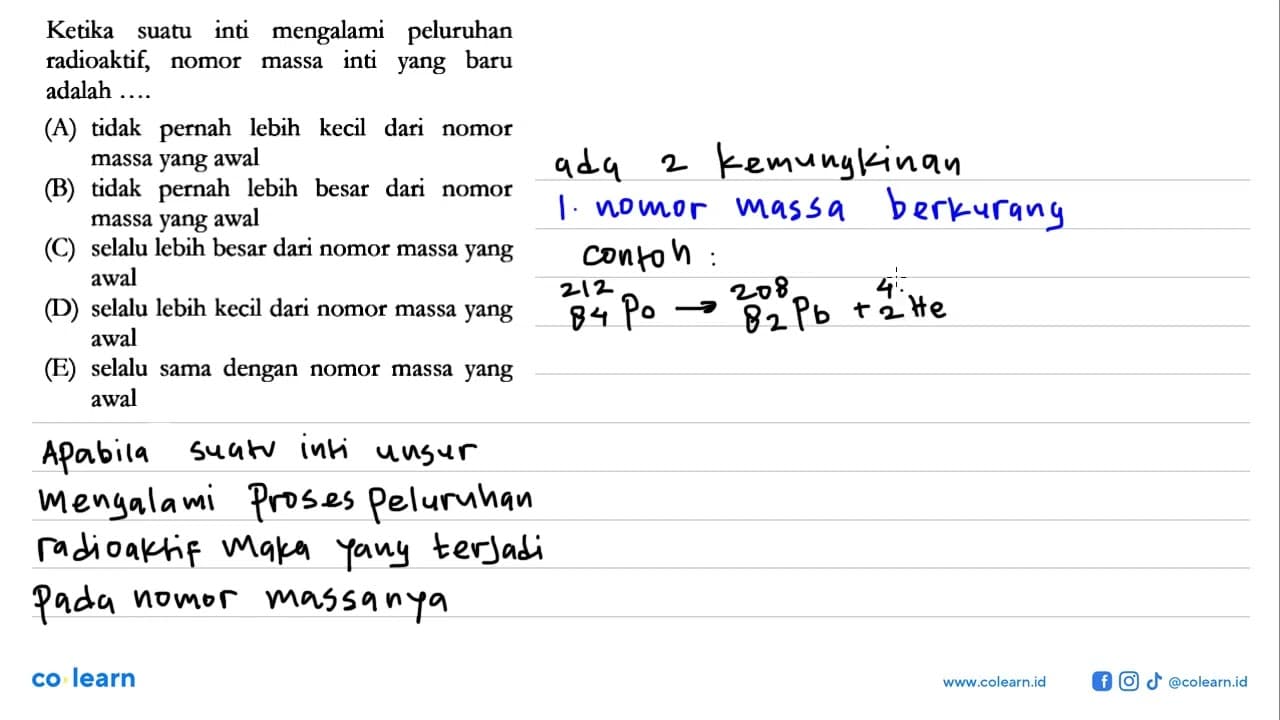 Ketika suatu inti mengalami peluruhan
radioaktif, nomor massa inti yang baru
adalah ....
(A) tidak pernah lebih kecil dari nomor
massa yang awal
(B) tidak pernah lebih besar dari nomor
massa yang awal
(C) selalu lebih besar dari nomor massa yang
awal
(D) selalu lebih kecil dari nomor massa yang
awal
(E) selalu sama dengan nomor massa yang
awal
Apabila suatu inti unsur
mengalami Proses Peluruhan
radioaktif maka yang terjadi
Pada nomor massanya
ada 2 kemungkinan
1. nomor massa berkurang
contoh :
²¹²₈₄Po → ²⁰⁸₈₂Pb + ⁴₂He
co learn
www.colearn.id
@colearn.id